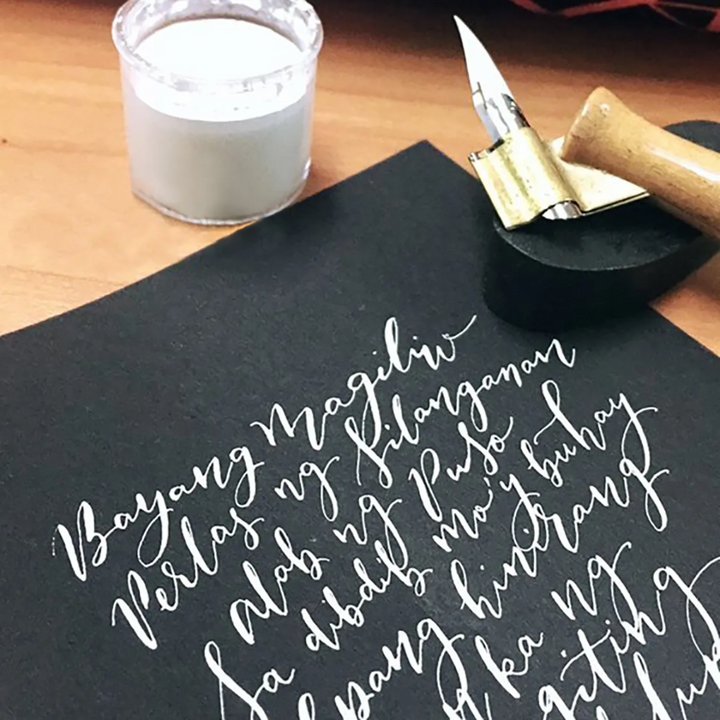 Bayang Magiliw
Perlas ng Silanganan
Alab ng Puso
Sa dibdib mo'y buhay
pang hinirang
ka ng
giting